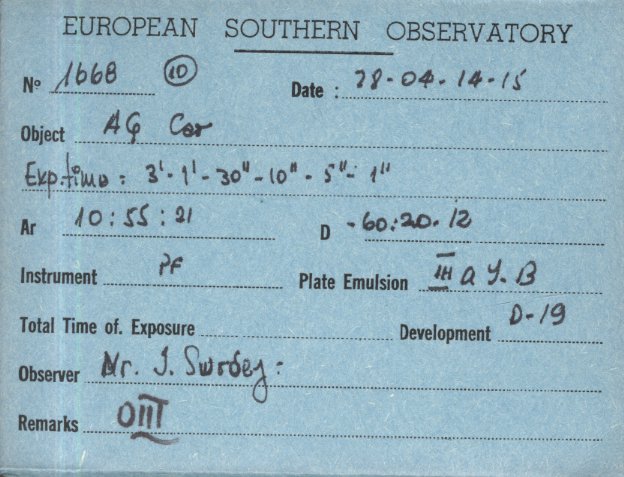 EUROPEAN SOUTHERN OBSERVATORY
Nº 1668 10 Date : 78-04-14-15
Object AG Car
Exp.time : 3'-1'-30"-10"-5"-1"
Ar 10:55:21 D -60:20.12
Instrument PF Plate Emulsion a J.B
Total Time of. Exposure Development D-19
Observer Mr. J. Surdej
Remarks OIII